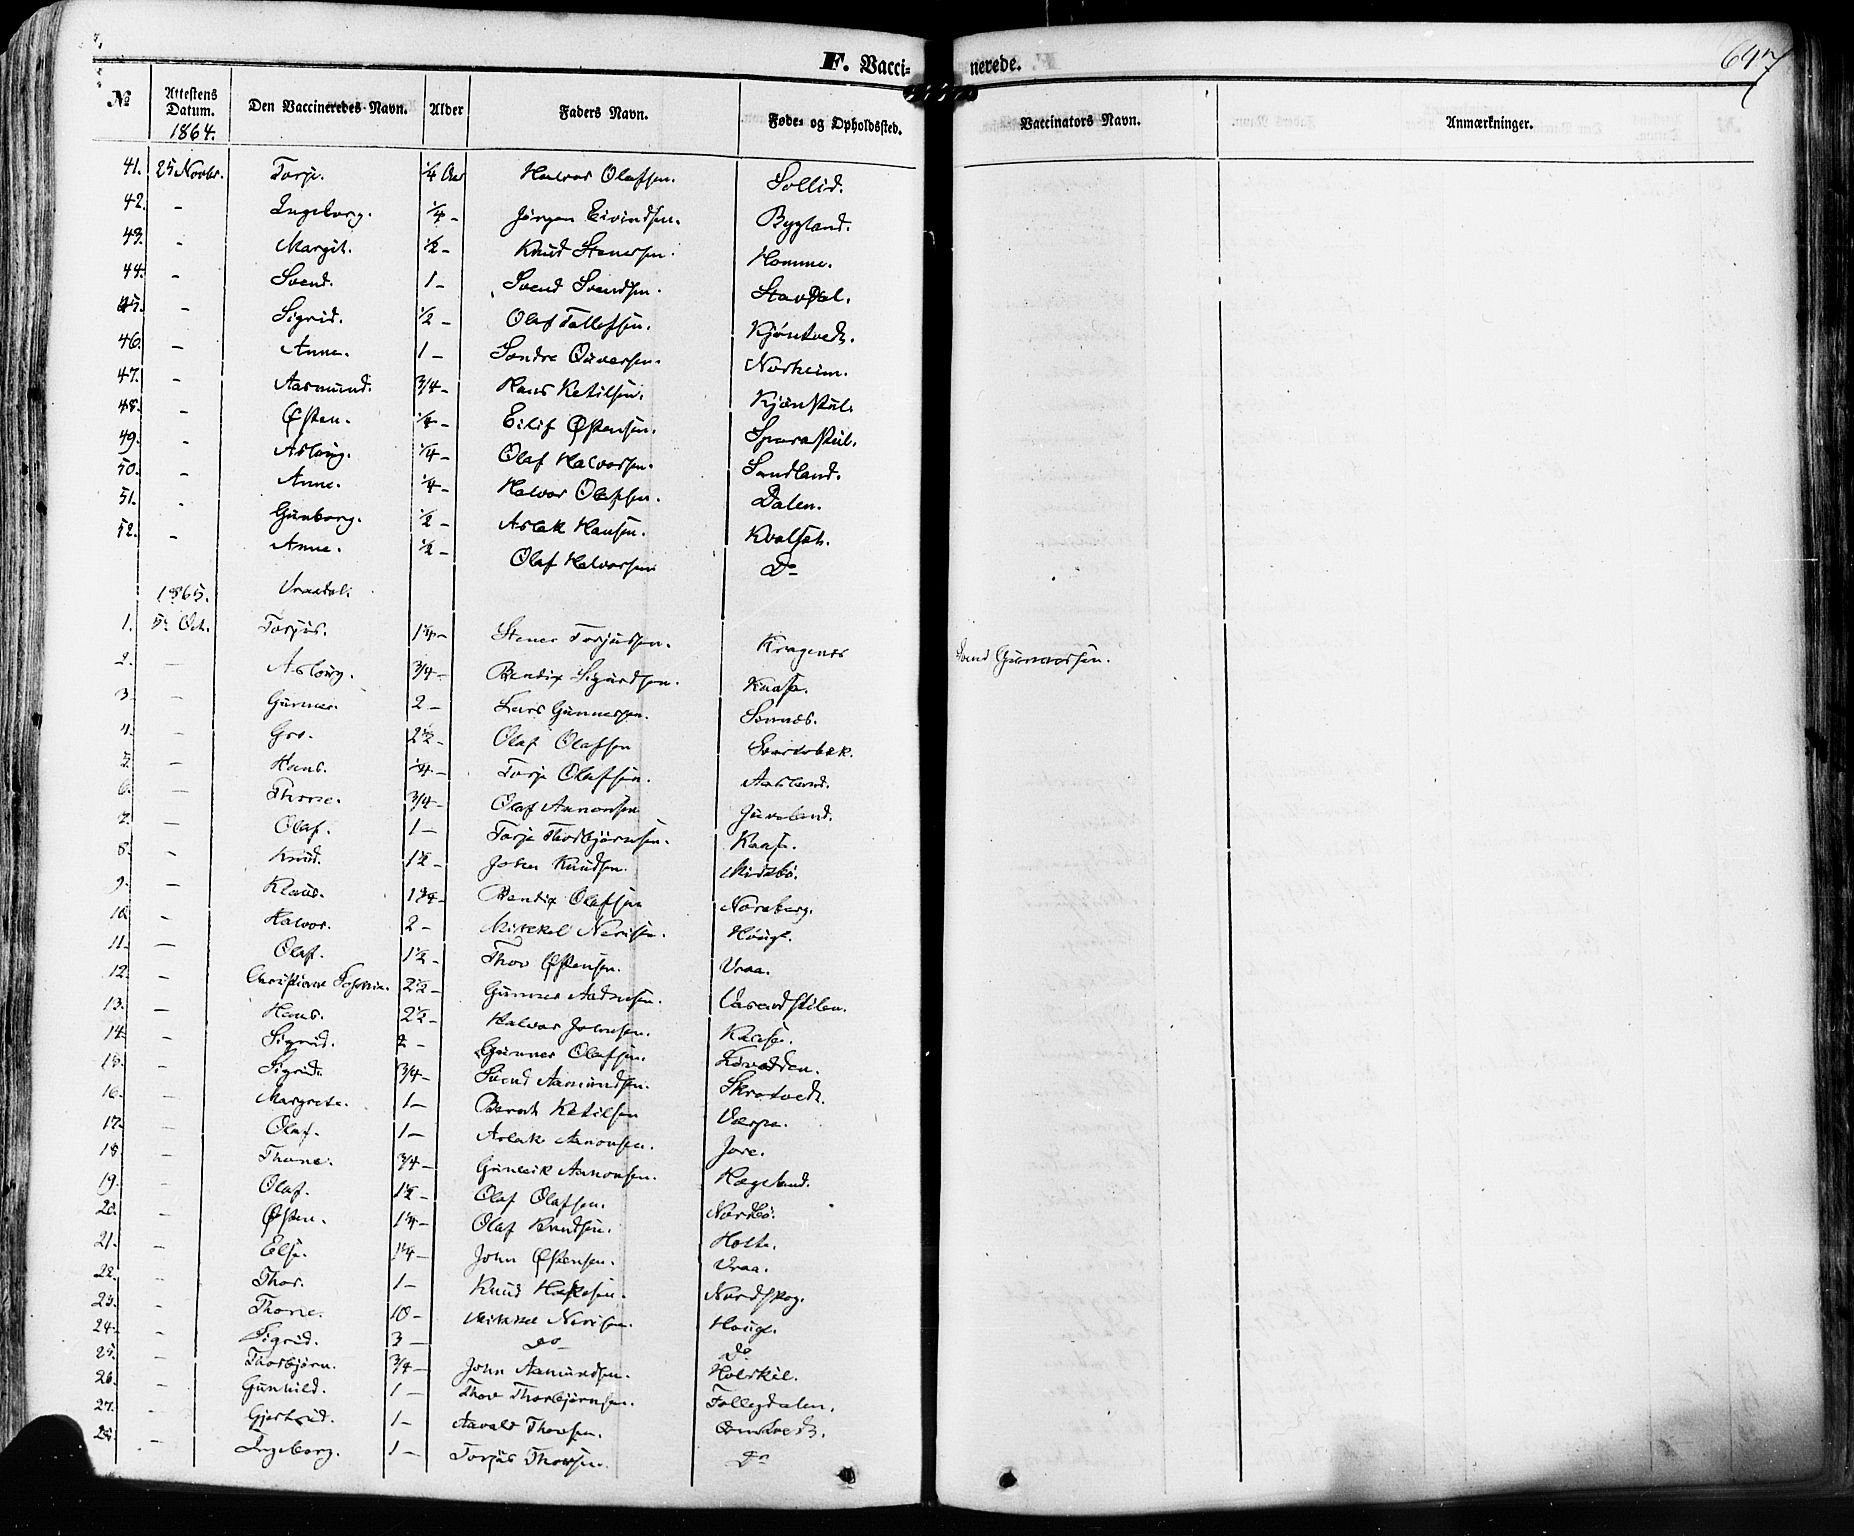 647
F. Vacci- nerede.
№ Attestens Datum. Den Vaccineredes Navn. Alder Faders Navn. Føde- og Opholdssted. Vaccinators Navn. Anmærkninger.
1864.
41. 25 Novbr. Torje. 1/4 Aar Halvor Olafsen. Sollid.
42. - Ingeborg. 1/4 - Jørgen Eivindsen. Bygland.
43. - Margit. 1/2 - Knud Stenersen. Homme.
44. - Svend. 1 - Svend Svendsen.
45. - Sigrid. 1/2 - Olaf Tallefsen. Kjøntvedt.
46. - Anne. 1 - Sondre Gunersen. Norheim.
47. - Aasmund. 3/4 - Hans Ketilsen. Kjønstul.
48. - Østen. 1/4 - Eilif Østensen. Sparastul.
49. - Aslaug. 1/4 - Olaf Halvorsen. Sandland.
50. - Anne. 1/4 - Halvor Olafsen. Dalen.
51. - Gunborg. 1/2 - Aslak Hansen. Kvalset.
52. - Anne. 1/2 - Olaf Halvorsen Do
1865. Vraadal.
1. 5te Oct. Torjus. 1 1/4 - Stener Torjussen. Kragenes Svend Gunnarsen.
2. - Aslaug. 3/4 - Bendix Sigurdsen. Kaasa.
3. - Gunner. 2 - Lars Gunnersen. Somnes.
4. - Gro. 2 1/2 - Olaf Olafsen
5. - Hans. 1/4 - Torje Olafsen. Aasland.
6. - Thone. 3/4 - Olaf Aanonsen Juveland.
7. - Olaf. 1 - Torje Thorbjørnsen. Kaasa.
8. - Knud. 1 1/2 - John Knudsen. Midtbø.
9. - Klaus. 1 3/4 - Bendix Olafsen Noraberg.
10. - Halvor. 2 - Mikkel Nerisen. Hougl.
11. - Olaf. 1 1/2 - Thov Østensen. Vraa.
12. - Christiane 2 1/2 - Gunner Aadnesen.
13. - Hans. 2 1/2 - Halvor Johnsen. Kaasa.
14. - Sigrid. 2 - Gunner Olafsen.
15. - Sigrid. 3/4 - Svend Aamundsen. Skrotvedt.
16. - Margrete. 1 - Berndt Ketilsen Værpe.
17. - Olaf. 1 - Aslak Aanonsen. Jore.
18 - Thone. 3/4 - Gunleik Aanonsen. Hægeland.
19. - Olaf. 1 1/2 - Olaf Olafsen. Nordbø.
20. - Østen. 1 1/4 - Olaf Knudsen. Holte.
21. - Else. 1 1/4 - John Østensen. Vraa.
22. - Thor. 1 - Knud Nordskog.
23. - Thone. 10 - Mikkel Nerisen. Hougl.
24. - Sigrid. 3 - Do Do
25. - Thorbjørn. 3/4 - John Aamundsen. Holskil.
26. - Gunhild. 1 - Thov Thorbjørnsen. Follegdalen.
27. - Gjertrud. 1 - Aavald Thovsen. Omtvedt.
28. - Ingeborg. 1 - Torjus Thovsen. Do